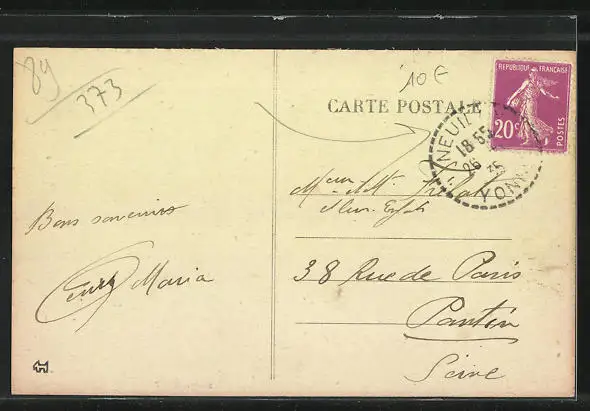 89
373
10 €
CARTE POSTALE
REPUBLIQUE FRANÇAISE
20c
POSTES
NEUIL
18 55
26
35
YONNE
Bons souvenirs
Maria
38 Rue de Paris
Pantin
Seine